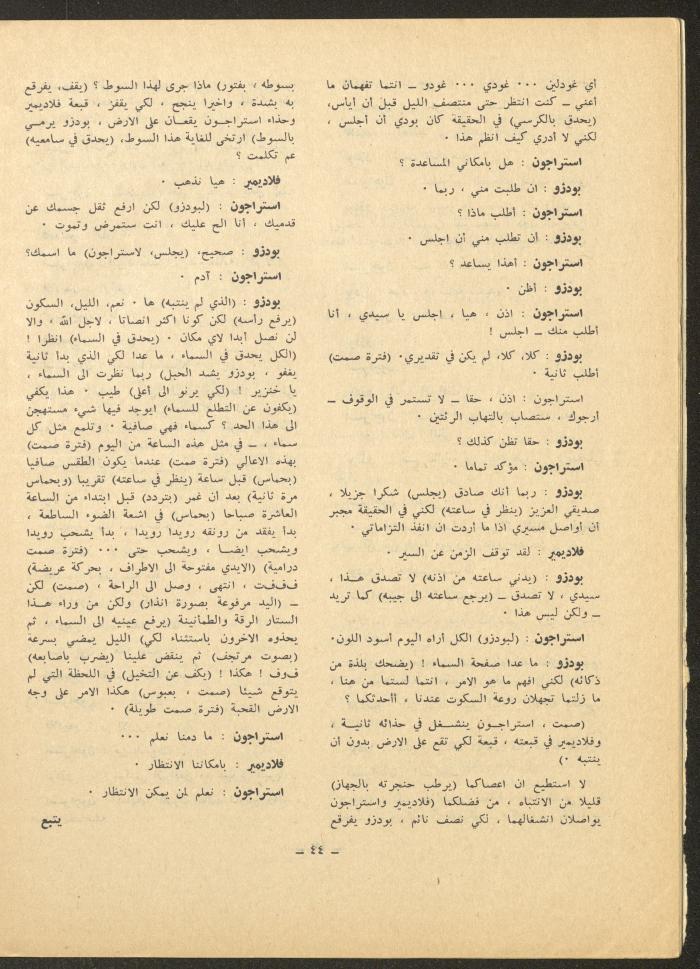 أي غودلين ٠٠٠ غودي ٠٠٠ غودو ــ انتما تفهمان ما
أعني ــ كنت انتظر حتى منتصف الليل قبل أن أيأس،
(يحدق بالكرسي) في الحقيقة كان بودي أن أجلس ،
لكني لا أدري كيف انظم هذا ٠
استراجون : هل بامكاني المساعدة ؟
بودزو : ان طلبت مني ، ربما ٠
استراجون : أطلب ماذا ؟
بودزو : ان تطلب مني أن اجلس ٠
استراجون : أهذا يساعد ؟
بودزو : أظن ٠
استراجون : اذن ، هيا ، اجلس يا سيدي ، أنا
أطلب منك ــ اجلس !
بودزو : كلا، كلا، لم يكن في تقديري٠ (فترة صمت)
أطلب ثانية ٠
استراجون : اذن ، حقا ــ لا تستمر في الوقوف ــ
أرجوك ، ستصاب بالتهاب الرئتين ٠
بودزو : حقا تظن كذلك ؟
استراجون : مؤكد تماما ٠
بودزو : ربما أنك صادق (يجلس) شكرا جزيلا ،
صديقي العزيز (ينظر في ساعته) لكني في الحقيقة مجبر
أن أواصل مسيري اذا ما أردت ان انفذ التزاماتي ٠
فلاديمير : لقد توقف الزمن عن السير ٠
بودزو : (يدني ساعته من اذنه) لا تصدق هـذا ،
سيدي ، لا تصدق ــ (يرجع ساعته الى جيبه) كما تريد
ــ ولكن ليس هذا ٠
استراجون : (لبودزو) الكل أراه اليوم أسود اللون٠
بودزو : ما عدا صفحة السماء ! (يضحك بلذة من
ذكائه) لكني افهم ما هو الامر ، انتما لستما من هنا ،
ما زلتما تجهلان روعة السكوت عندنا ، أأحدثكما ؟
(صمت ، استراجــون ينشــغل في حذائه ثانيــة ،
وفلاديمير في قبعته ، قبعة لكي تقع على الارض بدون أن
ينتبه ٠)
لا استطيع ان اعصاكما (يرطب حنجرته بالجهاز)
قليلا من الانتباه ، من فضلكما (فلاديمير واستراجون
يواصلان انشغالهما ، لكي نصف نائم ، بودزو يفرقع
بسوطه ، بفتور) ماذا جرى لهذا السوط ؟ (يقف، يفرقع
به بشدة ، واخيرا ينجح ، لكي يقفز ، قبعة فلاديمير
وحذاء استراجــون يقعــان على الارض ، بودزو يرمــي
بالسوط) ارتخى للغاية هذا السوط، (يحدق في سامعيه)
عم تكلمت ؟
فلاديمير : هيا نذهب ٠
استراجون : (لبودزو) لكن ارفع ثقل جسمك عن
قدميك ، أنا الح عليك ، انت ستمرض وتموت ٠
بودزو : صحيح، (يجلس، لاستراجون) ما اسمك؟
استراجون : آدم ٠
بودزو : (الذي لم ينتبه) ها ٠ نعم، الليل، السكون
(يرفع رأسه) لكن كونا اكثر انصاتا ، لاجل الله ، والا
لن نصل أبدا لاي مكان ٠ (يحدق في السماء) انظرا !
(الكل يحدق في السماء ، ما عدا لكي الذي بدأ ثانية
يغفو ، بودزو يشد الحبل) ربما نظرت الى السماء ،
يا خنزير ! (لكي يرنو الى أعلى) طيب ٠ هذا يكفي
(يكفون عن التطلع للسماء) ايوجد فيها شيء مستهجن
الى هذا الحد ؟ كسماء فهي صافية ٠ وتلمع مثل كل
سماء ، ــ في مثل هذه الساعة من اليوم (فترة صمت)
بهذه الاعالي (فترة صمت) عندما يكون الطقس صافيا
(بحماس) قبل ساعة (ينظر في ساعته) تقريبا (وبحماس
مرة ثانية) بعد أن غمر (بتردد) قبل ابتداء من الساعة
العاشرة صباحا (بحماس) في اشعة الضوء الساطعة ،
بدأ يفقد من رونقه رويدا رويدا ، بدأ يشحب رويدا
ويشحب ايضــا ، ويشحب حتى ٠٠٠ (فترة صمت
درامية) (الايدي مفتوحة الى الاطراف ، بحركة عريضة)
ففففت ، انتهى ، وصل الى الراحة ، (صمت) لكن
ــ (اليد مرفوعة بصورة انذار) ولكن من وراء هــذا
الستار الرقة والطمأنينة (يرفع عينيه الى السماء ، ثم
يحذوه الاخرون باستثناء لكي) الليل يمضي بسرعة
(بصوت مرتجف) ثم ينقض علينا (يضرب باصابعه)
فوف ! هكذا ! (يكف عن التخيل) في اللحظة التي لم
يتوقع شيئا (صمت ، بعبوس) هكذا الامر على وجه
الارض القحبة (فترة صمت طويلة) ٠
استراجون : ما دمنا نعلم ٠٠٠
فلاديمير : بامكاننا الانتظار ٠
استراجون : نعلم لمن يمكن الانتظار ٠
يتبع
ــ ٤٤ ــ